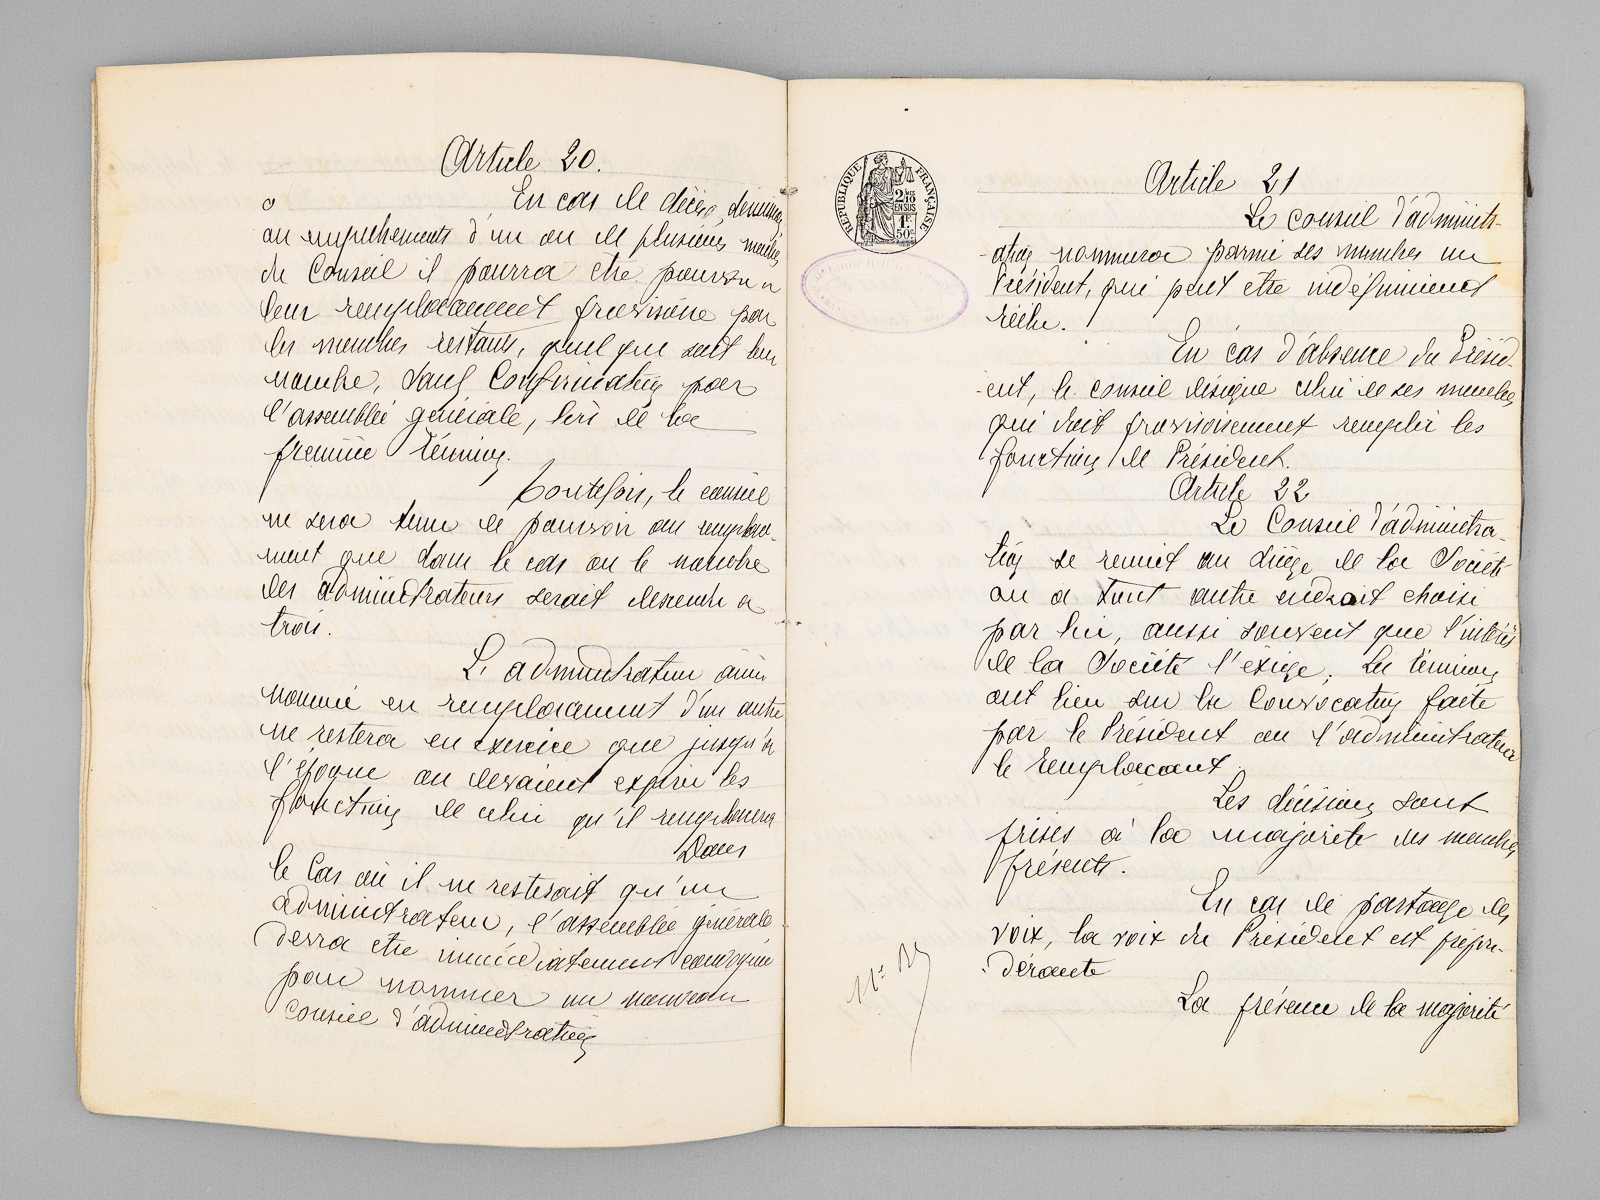 Article 20.
En cas de décès, démission
ou empêchements d'un ou de plusieurs membres
du Conseil il pourra être pourvu a
leur remplacement provisoire par
les membres restants, quel que soit leur
nombre, sauf Confirmation par
l'assemblée générale, lors de la
première réunion.
Toutefois, le conseil
ne sera tenu de pourvoir au remplace-
ment que dans le cas ou le nombre
des administrateurs serait descendu a
trois.
L'administrateur ainsi
nommé en remplacement d'un autre
ne restera en exercice que jusqu'à
l'époque ou devaient expirer les
fonctions de celui qu'il remplacera
Dans
le Cas où il ne resterait qu'un
administrateur, l'assemblée générale
devra etre immédiatement convoquée
pour nommer un nouveau
conseil d'administration
RÉPUBLIQUE FRANÇAISE
2 10
EN SUS
1F
50c
Article 21
Le conseil d'administr-
ation nommera parmi ses membres un
Président, qui peut etre indéfiniment
réélu.
En cas d'absence du Présid-
-ent, le conseil désigne celui de ses membres
qui doit provisoirement remplir les
fonctions de Président.
Article 22
Le Conseil d'administra-
tion se reunit au siège de la Société
ou a tout autre endroit choisi
par lui, aussi souvent que l'intérêt
de la Société l'exige; les réunions
ont lieu sur la Convocation faite
par le Président ou l'administrateur
le remplacant.
Les décisions sont
prises à la majorité des membres
présents.
En cas de partage des
voix, la voix du Président est prépon-
dérante
La présence de la majorité